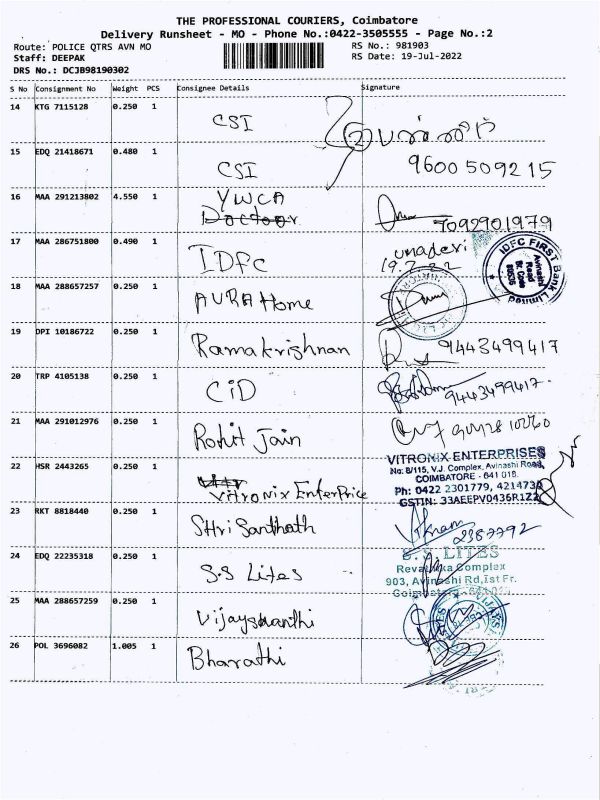 THE PROFESSIONAL COURIERS, Coimbatore
Delivery Runsheet - MO - Phone No.:0422-3505555 - Page No.:2
Route: POLICE QTRS AVN MO RS No.: 981903
Staff: DEEPAK RS Date: 19-Jul-2022
DRS No.: DCJB98190302
S No Consignment No Weight PCS Consignee Details Signature
14 KTG 7115128 0.250 1 CSI
15 EDQ 21418671 0.480 1 CSI 9600509215
16 MAA 291213802 4.550 1 YWCA
Doctoor 7092901979
17 MAA 286751800 0.490 1 IDFC umadevi
19.7.22
IDFC FIRST Bank Limited
Avinashi
Road
Br. Code
18 MAA 288657257 0.250 1 AURA Home
19 DPI 10186722 0.250 1 Ramakrishnan 9443499417
20 TRP 4105138 0.250 1 CiD 9443499417.
21 MAA 291012976 0.250 1 Rohit Jain
22 HSR 2443265 0.250 1 Vitronix Enterprice
VITRONIX ENTERPRISES
No: 8/115, V.J. Complex, Avinashi Road,
COIMBATORE - 641 018.
Ph: 0422 2301779, 4214730
GSTIN: 33AEEPV0436R1Z2
23 RKT 8818440 0.250 1 SHri Santhath
24 EDQ 22235318 0.250 1 S.S Lites
S.S. LITES
Revathika Complex
903, Avinashi Rd, Ist Fr.
25 MAA 288657259 0.250 1 Vijayshanthi
26 POL 3696082 1.005 1 Bharathi